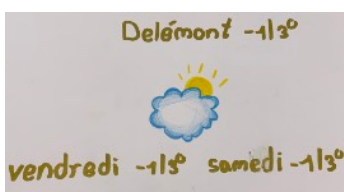 Delémont -1/3°
vendredi -1/3° samedi -1/3°